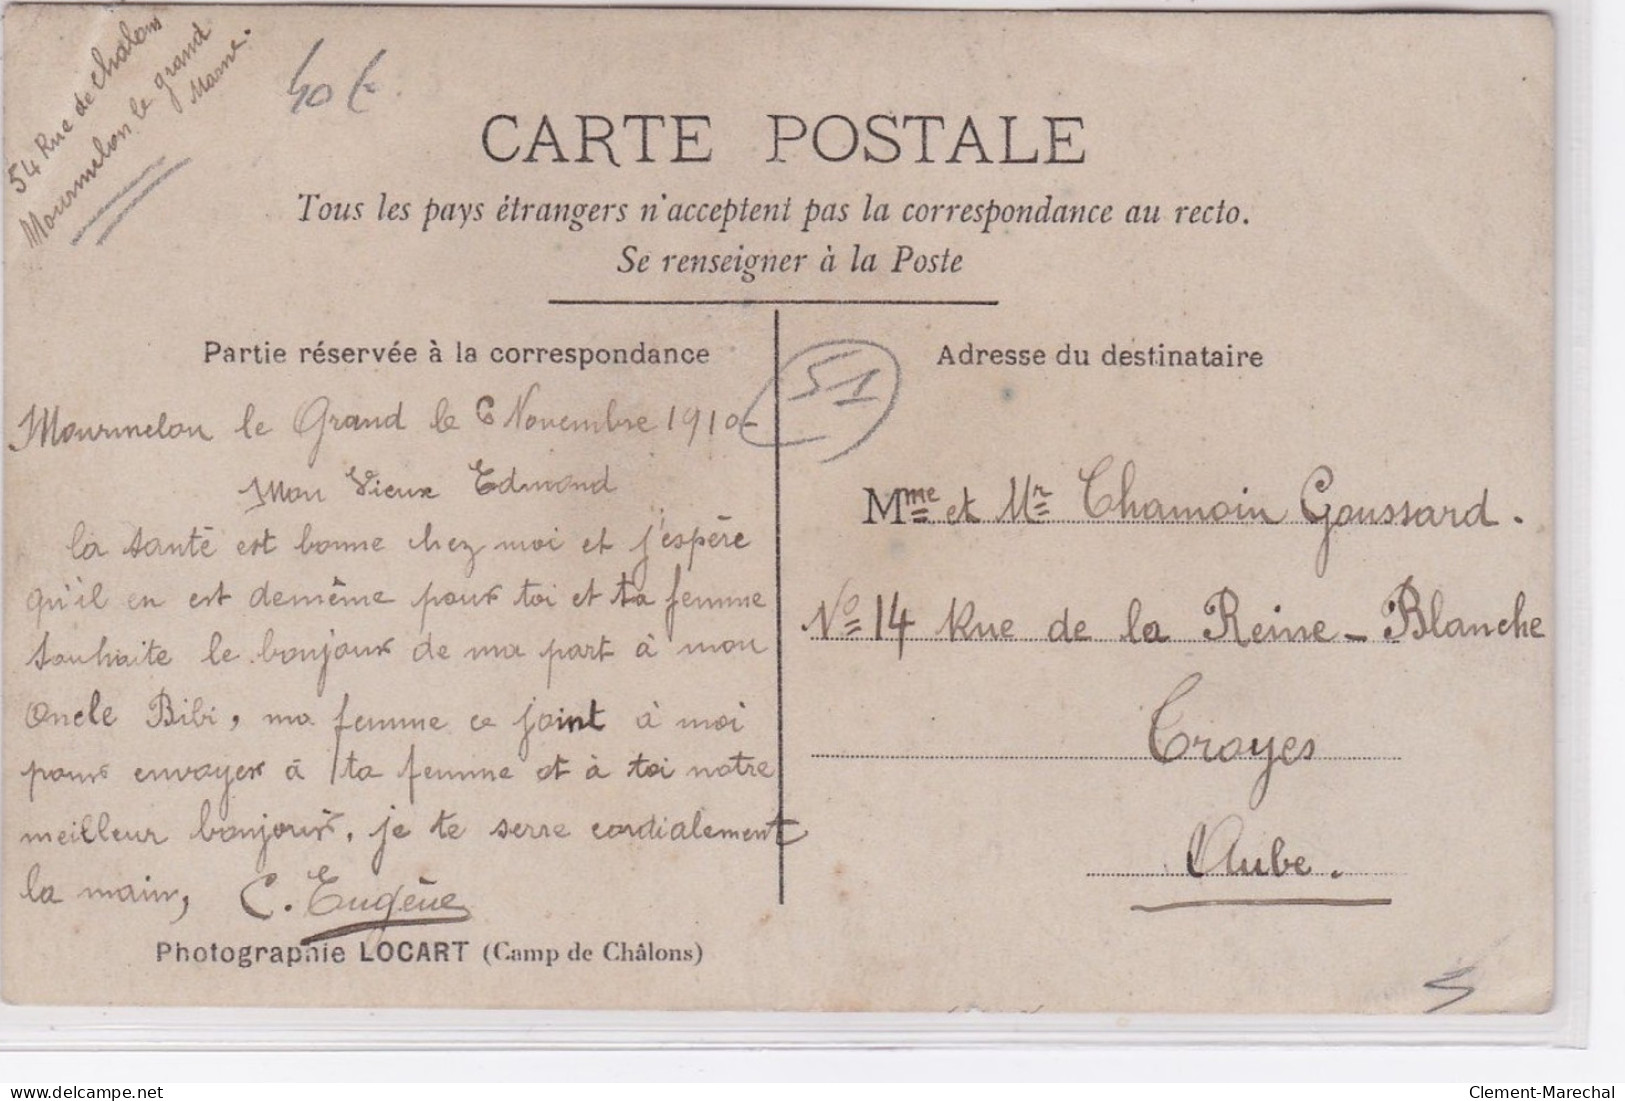 54 Rue de Chalons
Mourmelon le grand
Marne.
40 €
CARTE POSTALE
Tous les pays étrangers n'acceptent pas la correspondance au recto.
Se renseigner à la Poste
Partie réservée à la correspondance
51
Mourmelon le Grand le 6 Novembre 1910-
Mon Vieux Edmond
la santé est bonne chez moi et j'espère
qu'il en est demême pour toi et ta femme
souhaite le bonjour de ma part à mon
Oncle Bibi, ma femme ce joint à moi
pour envoyer à ta femme et à toi notre
meilleur bonjour, je te serre cordialement
la main, C. Eugène
Photographie LOCART (Camp de Châlons)
Adresse du destinataire
Mme et Mr Chamoin Goussard.
No 14 Rue de la Reine-Blanche
Troyes
Aube.
delcampe.net
Clement-Marechal